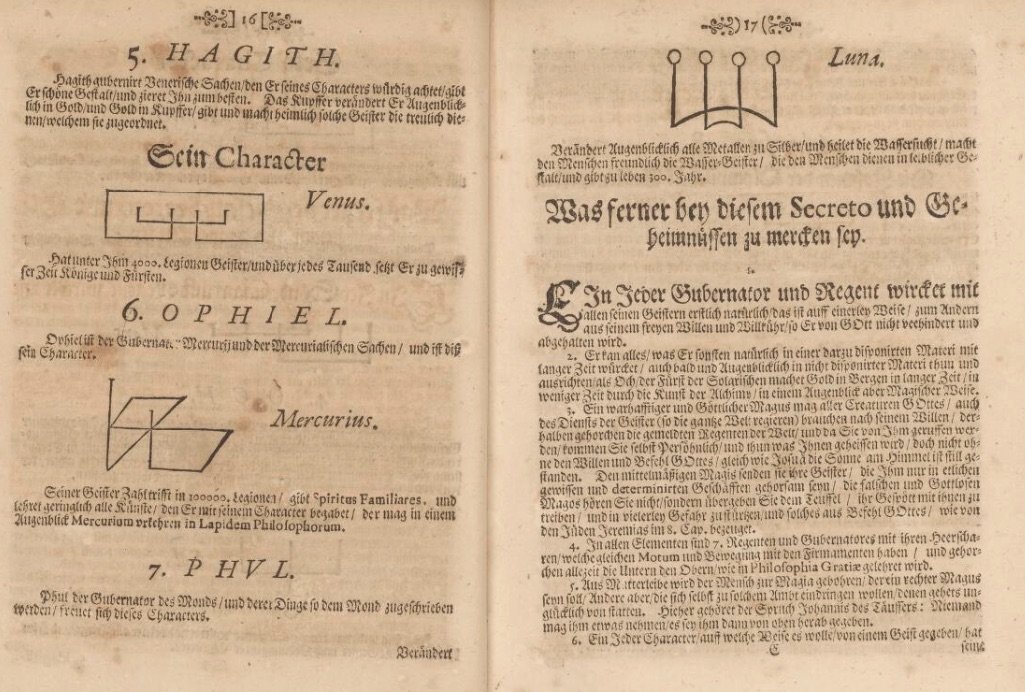 16
5. HAGITH.
Hagith gubernirt Venerische Sachen/den Er seines Characters würdig achtet/gibt
Er schöne Gestalt/und zieret Ihn zum besten. Das Kupffer verändert Er Augenblick-
lich in Gold/und Gold in Kupffer/gibt und macht heimlich solche Geister die treulich die-
nen/welchem sie zugeordnet.
Sein Character
Venus.
Hat unter Ihm 4000. Legionen Geister/und über jedes Tausend setzt Er zu gewis-
ser Zeit Könige und Fürsten.
6. OPHIEL.
Ophiel ist der Gubernat. Mercurij und der Mercurialischen Sachen/ und ist diß
sein Character.
Mercurius.
Seiner Geister Zahl trifft in 100000. Legionen/ gibt Spiritus Familiares. und
lehret geringlich alle Künste/ den Er mit seinem Character begabet/ der mag in einem
Augenblick Mercurium vrkehren in Lapidem Philosophorum.
7. PHVL.
Phul der Gubernator des Monds/und derer Dinge so dem Mond zugeschrieben
werden/ freuet sich dieses Characters.
Verändert
17
Luna.
Verändert Augenblicklich alle Metallen zu Silber/und heilet die Wassersucht/ macht
den Menschen freundlich die Wasser-Geister/ die den Menschen dienen in leiblicher Ge-
stalt/und gibt zu leben 300. Jahr.
Was ferner bey diesem Secreto und Ge-
heimnüssen zu mercken sey.
1.
EIn Jeder Gubernator und Regent wircket mit
allen seinen Geistern erstlich natürlich/das ist auff einerley Weise/ zum Andern
aus seinem freyen Willen und Willkühr/so Er von GOtt nicht veehindert und
abgehalten wird.
2. Er kan alles/ was Er sonsten natürlich in einer darzu disponirten Materi mit
langer Zeit würcket/ auch bald und Augenblicklich in nicht disponirter Materi thun und
ausrichten/als Och/der Fürst der Solarischen machet Gold in Bergen in langer Zeit/in
weniger Zeit durch die Kunst der Alchimy/in einem Augenblick aber Magischer Weise.
3. Ein warhafftiger und Göttlicher Magus mag aller Creaturen GOttes/ auch
des Diensts der Geister (so die gantze Welt regieren) brauchen nach seinem Willen/ der-
halben gehorchen die gemeldten Regenten der Welt/und da Sie von Ihm geruffen wer-
den/kommen Sie selbst Persöhnlich/und thun was Ihnen geheissen wird/ doch nicht oh-
ne den Willen und Befehl GOttes/ gleich wie Josua die Sonne am Himmel ist still ge-
standen. Den mittelmäßigen Magis senden sie ihre Geister/ die Ihm nur in etlichen
gewissen und determinirten Geschäfften gehorsam seyn/ die falschen und Gottlosen
Magos hören Sie nicht/sondern übergeben Sie dem Teuffel/ ihr Gespött mit ihnen zu
treiben/ und in vielerley Gefahr zu stürtzen/und solches aus Befehl GOttes/ wie von
den Jüden Jeremias im 8. Cap. bezeuget.
4. In allen Elementen sind 7. Regenten und Gubernatores mit ihren Heerscha-
ren/welche gleichen Motum und Bewegung mit den Firmamenten haben/ und gehor-
chen allezeit die Untern den Obern/wie in Philosophia Gratiæ gelehret wird.
5. Aus Mutterleibe wird der Mensch zur Magia gebohren/ der ein rechter Magus
seyn soll/ Andere aber/die sich selbst zu solchem Ambt eindringen wollen/denen gehets un-
glücklich von statten. Hieher gehöret der Spruch Johannis des Täuffers: Niemand
mag ihm etwas nehmen/es sey ihm dann von oben herab gegeben.
6. Ein Jeder Character/auff welche Weise es wolle/von einem Geist gegeben/ hat
C
seine